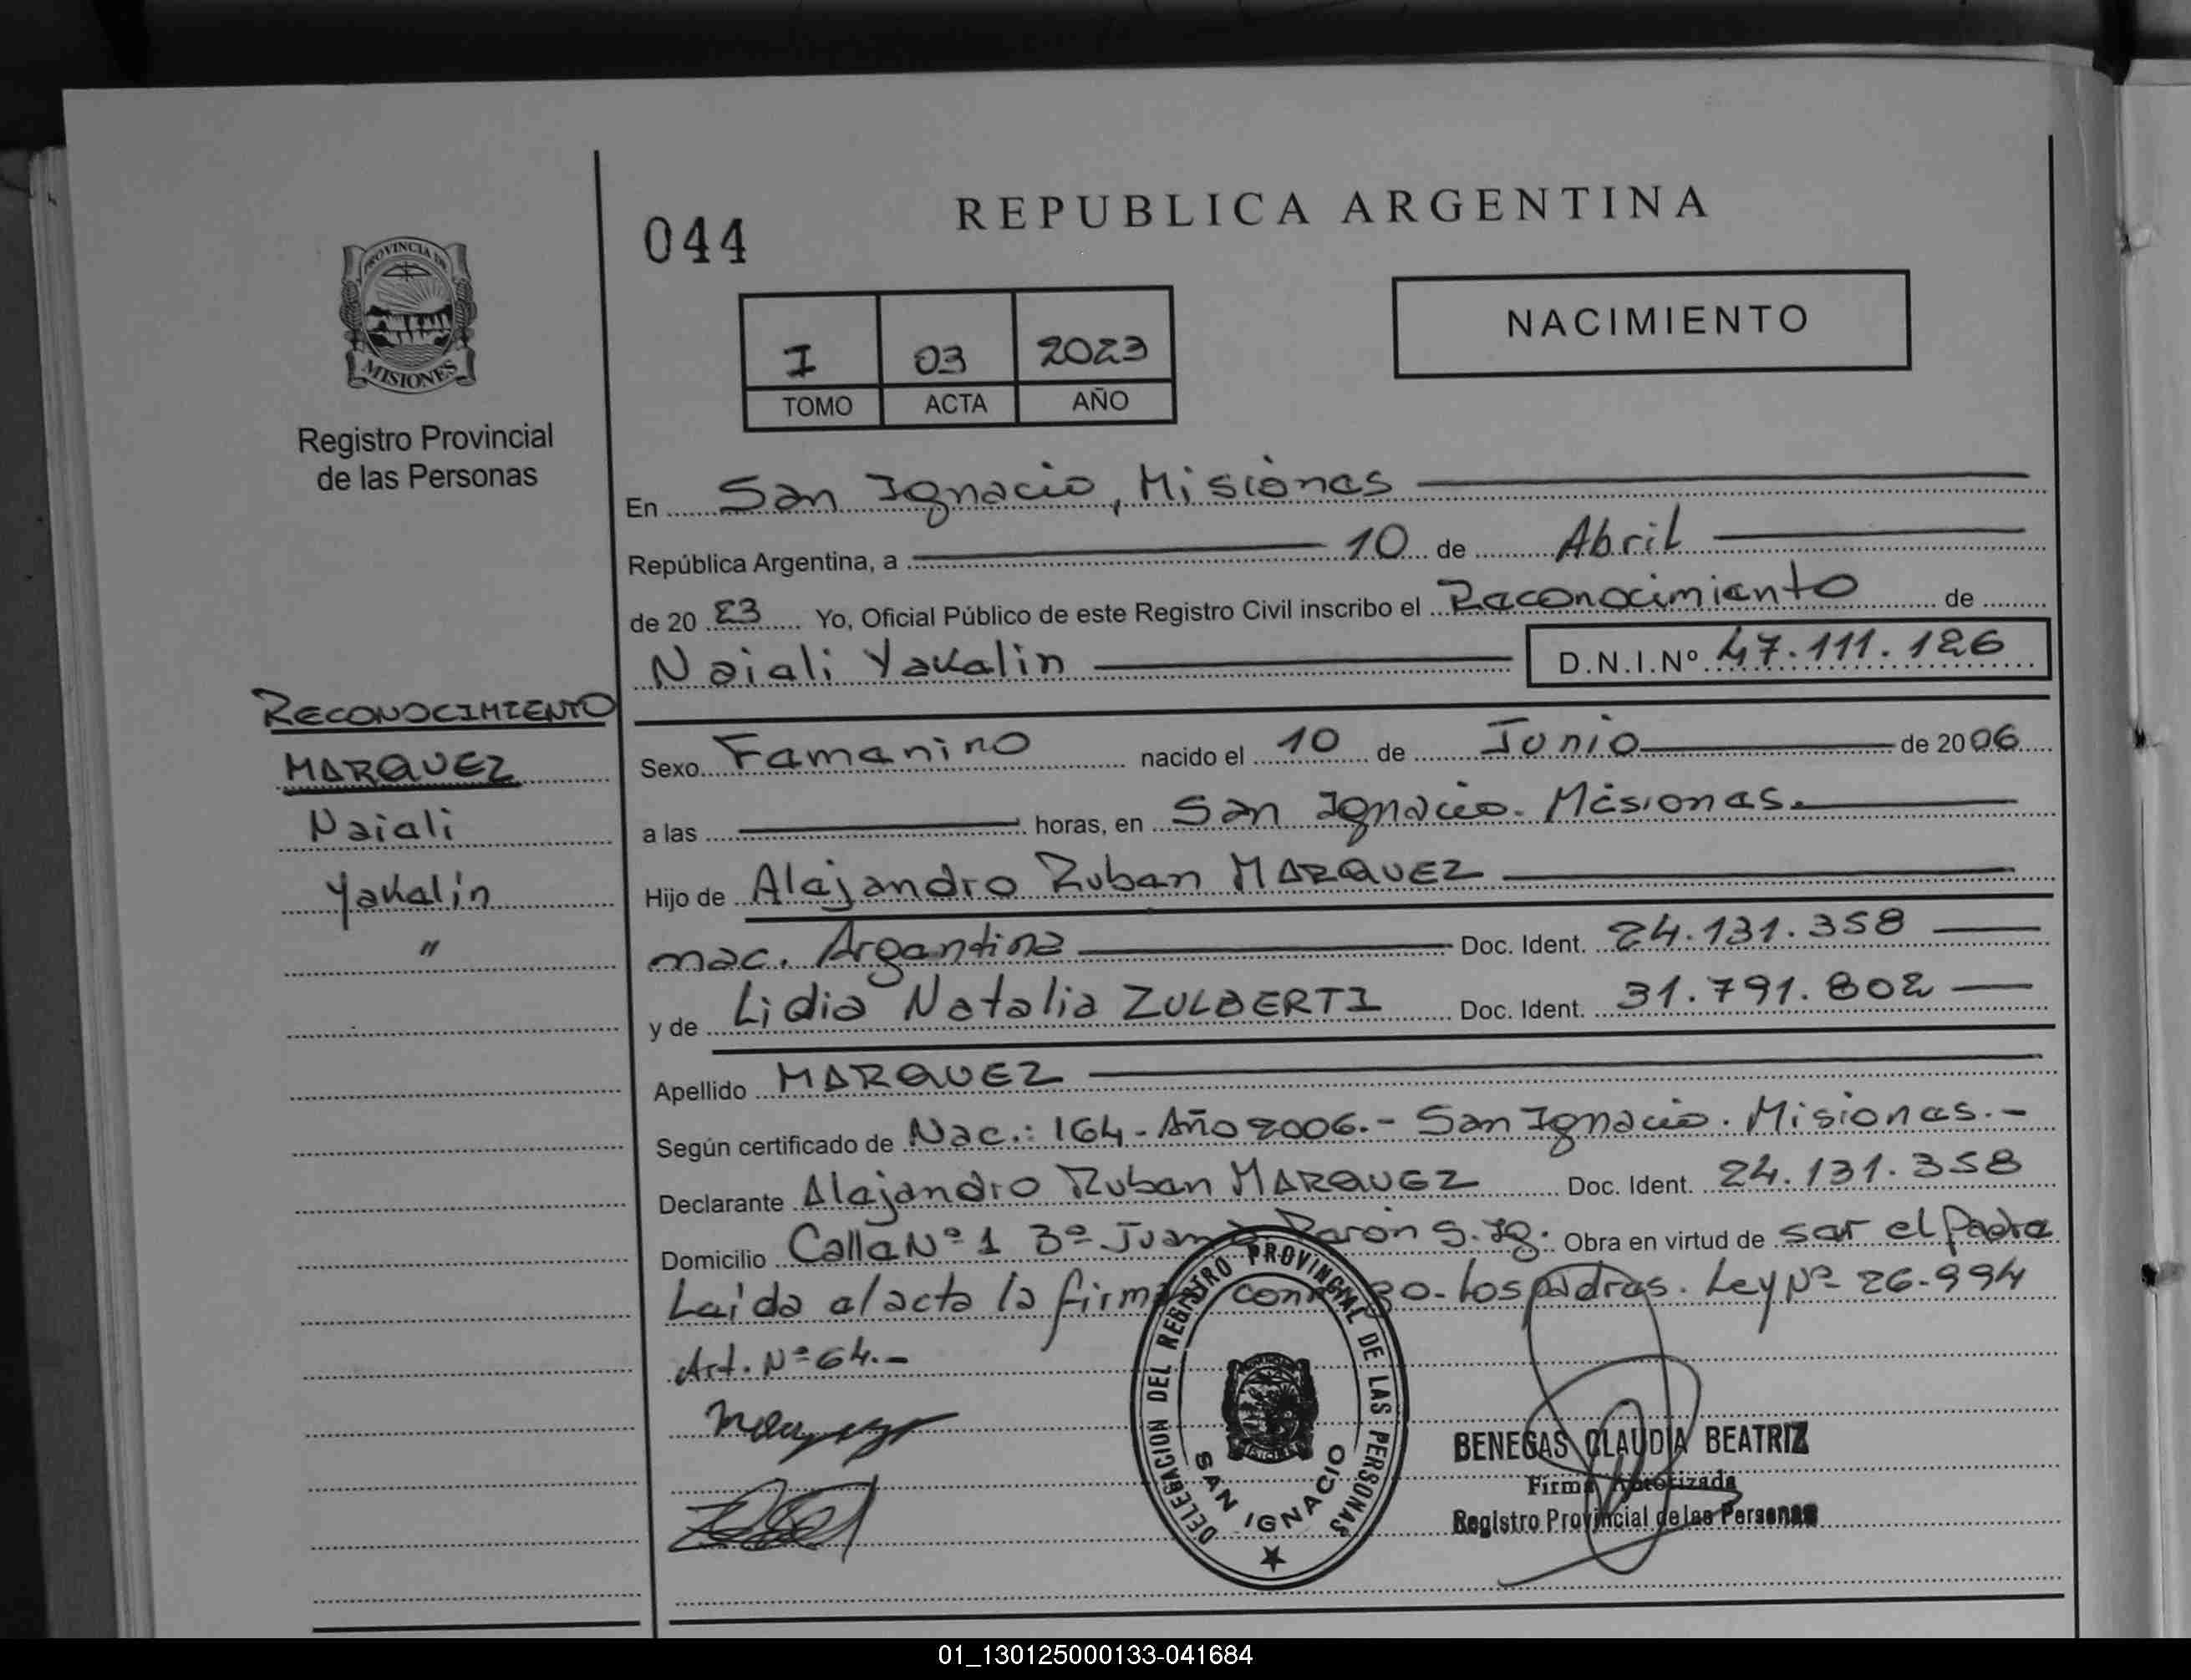 REPUBLICA ARGENTINA
044
PROVINCIA DE
MISIONES
Registro Provincial
de las Personas
I 03 2023
TOMO ACTA AÑO
NACIMIENTO
En San Ignacio, Misiones
República Argentina, a 10 de Abril
de 20 23 Yo, Oficial Público de este Registro Civil inscribo el Reconocimiento de
Naiali Yakelin D.N.I.Nº 47.111.126
RECONOCIMIENTO
MARQUEZ
Naiali
Yakelin
"
Sexo Femenino nacido el 10 de Junio de 2006
a las horas, en San Ignacio. Misiones.
Hijo de Alejandro Ruben MARQUEZ
nac. Argentina Doc. Ident. 24.131.358
y de Lidia Natalia ZULBERTI Doc. Ident. 31.791.802
Apellido MARQUEZ
Según certificado de Nac.: 164 - Año 2006.- San Ignacio. Misiones.-
Declarante Alejandro Ruben MARQUEZ Doc. Ident. 24.131.358
Domicilio Calle Nº 1 Bº Juan Peron S. Ig. Obra en virtud de ser el Padre
Leida el acta la firman conmigo los padres. Ley Nº 26.994
Art. Nº 64.-
DELEGACION DEL REGISTRO PROVINCIAL DE LAS PERSONAS
SAN IGNACIO
BENEGAS CLAUDIA BEATRIZ
Firma Autorizada
Registro Provincial de las Personas
01_130125000133-041684